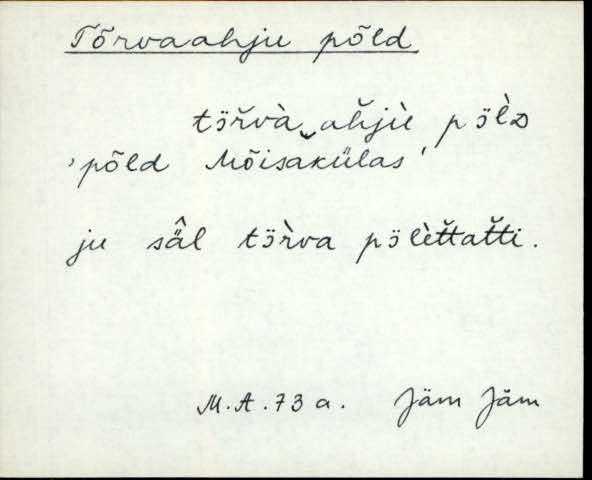 Tõrvaahju põld
tö̆rvà‿ăhjù pö̀lᴅ
'põld Mõisakülas'
ju sä̂l tö̀rva pöl̀ĕttătti.
M.A. 73 a. Jäm Jäm